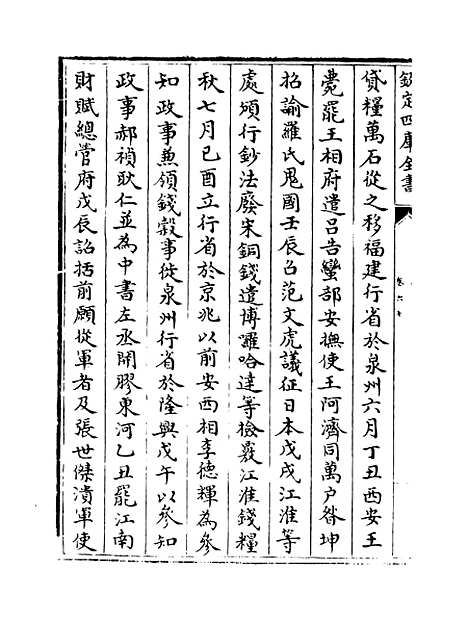 欽定四庫全書
貸糧萬石從之移福建行省於泉州六月丁丑西安王
薨罷王相府遣呂告蠻部安撫使王阿濟同萬户昝坤
招諭羅氏鬼國壬辰召范文虎議征日本戊戌江淮等
處頒行鈔法廢宋銅錢遣博囉哈達等檢覈江淮錢糧
秋七月己酉立行省於京兆以前安西相李德輝為參
知政事兼領錢穀事徙泉州行省於隆興戊午以參知
政事郝禎耿仁並為中書左丞開膠東河乙丑罷江南
財賦總管府戊辰詔括前願從軍者及張世傑潰軍使